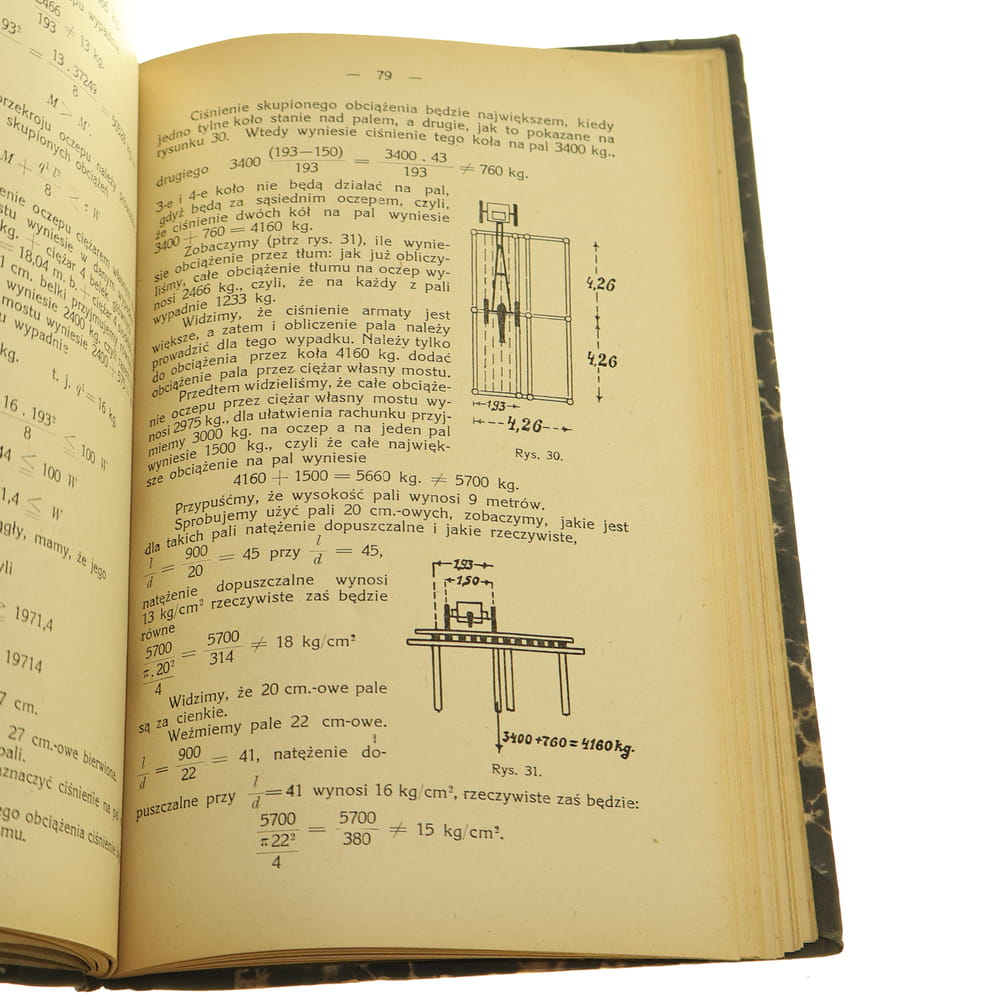 2466
193 ≠ 13 kg.
93² = 13 . 37249
8
M > M.
przekroju oczepu należy
skupionych obciążeń
M + q¹ l²
8
W
oczepu ciężarem
mostu wyniesie w danym
kg. + ciężar 4 belek
= 18,04 m. b. + ciężar 4
1 cm. belki przyjmujemy
wyniesie 2400 kg. czyli
mostu wyniesie 2400 + 575
u wypadnie
kg.
t. j. q¹ = 16 kg.
16 . 193²
8 ≤ 100 W
44 ≤ 100 W
1,4 ≤ W
mamy, że jego
1971,4
19714
7 cm.
27 cm.-owe bierwiona
pali.
znaczyć ciśnienie na pal
ego obciążenia ciśnienie
mu.
— 79 —
Ciśnienie skupionego obciążenia będzie największem, kiedy
jedno tylne koło stanie nad palem, a drugie, jak to pokazane na
rysunku 30. Wtedy wyniesie ciśnienie tego koła na pal 3400 kg.,
drugiego 3400 (193—150) / 193 = 3400 . 43 / 193 ≠ 760 kg.
3-e i 4-e koło nie będą działać na pal,
gdyż będą za sąsiednim oczepem, czyli,
że ciśnienie dwóch kół na pal wyniesie
3400 + 760 = 4160 kg.
Zobaczymy (ptrz rys. 31), ile wynie-
sie obciążenie przez tłum: jak już obliczy-
liśmy, całe obciążenie tłumu na oczep wy-
nosi 2466 kg., czyli, że na każdy z pali
wypadnie 1233 kg.
Widzimy, że ciśnienie armaty jest
większe, a zatem i obliczenie pala należy
prowadzić dla tego wypadku. Należy tylko
do obciążenia przez koła 4160 kg. dodać
obciążenie pala przez ciężar własny mostu.
Przedtem widzieliśmy, że całe obciąże-
nie oczepu przez ciężar własny mostu wy-
nosi 2975 kg., dla ułatwienia rachunku przyj-
miemy 3000 kg. na oczep a na jeden pal
wyniesie 1500 kg., czyli że całe najwięk-
sze obciążenie na pal wyniesie
4,26
4,26
1,93
4,26
Rys. 30.
4160 + 1500 = 5660 kg. ≠ 5700 kg.
Przypuśćmy, że wysokość pali wynosi 9 metrów.
Sprobujemy użyć pali 20 cm.-owych, zobaczymy, jakie jest
dla takich pali natężenie dopuszczalne i jakie rzeczywiste,
l / d = 900 / 20 = 45 przy l / d = 45,
natężenie dopuszczalne wynosi
13 kg/cm² rzeczywiste zaś będzie
równe
5700 / (π . 20² / 4) = 5700 / 314 ≠ 18 kg/cm²
Widzimy, że 20 cm.-owe pale
są za cienkie.
Weźmiemy pale 22 cm-owe.
l / d = 900 / 22 = 41, natężenie do-
1,93
1,50
3400 + 760 = 4160 kg.
Rys. 31.
puszczalne przy l / d = 41 wynosi 16 kg/cm², rzeczywiste zaś będzie:
5700 / (π 22² / 4) = 5700 / 380 ≠ 15 kg/cm².